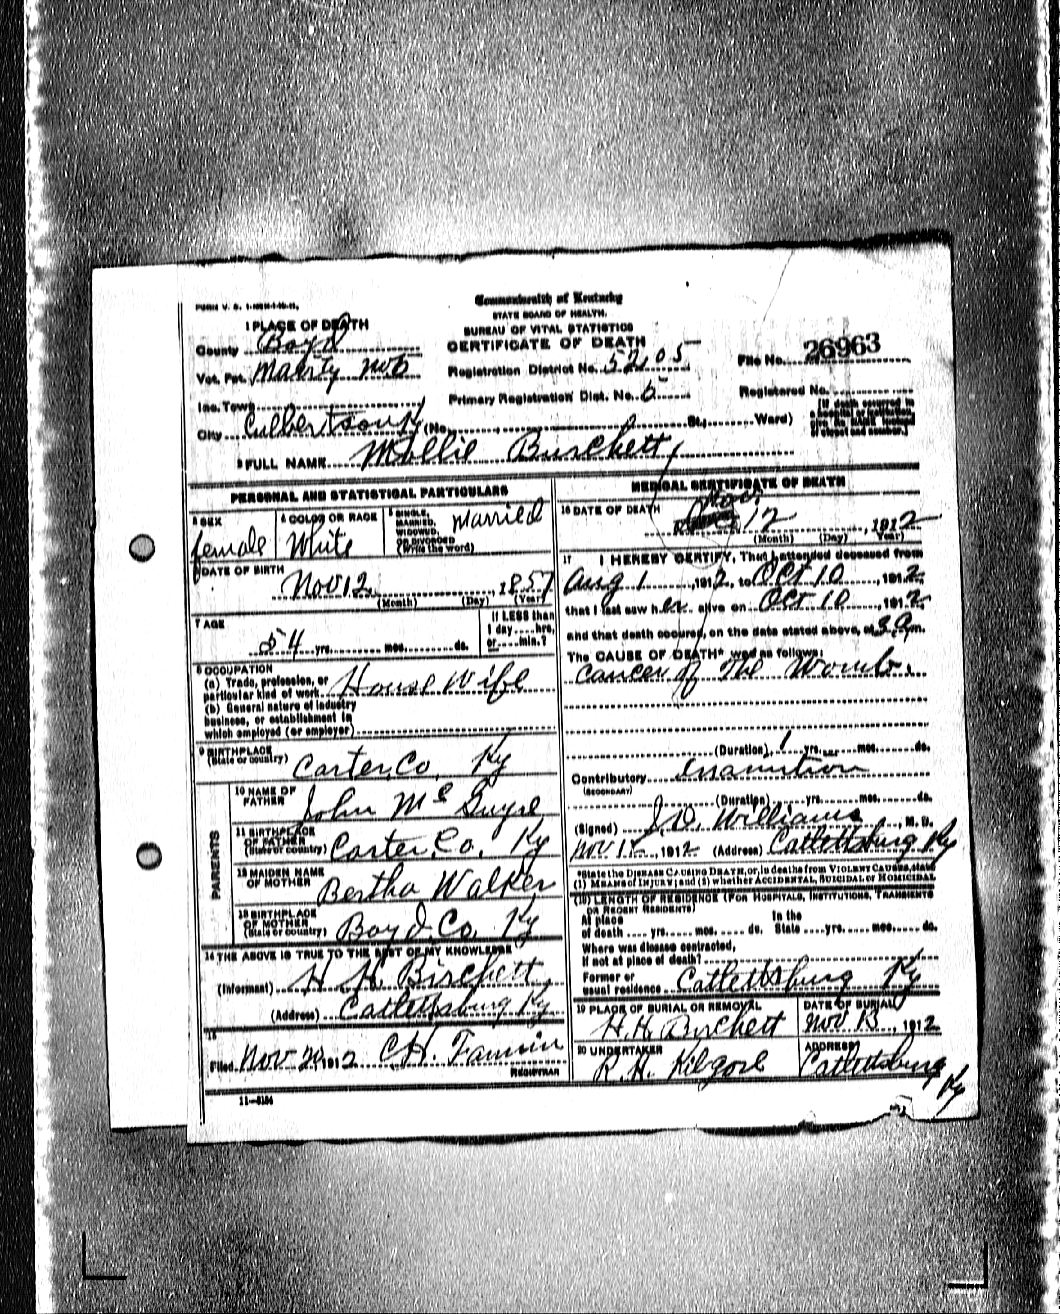 FORM V. S. 1-
Commonwealth of Kentucky
STATE BOARD OF HEALTH.
BUREAU OF VITAL STATISTICS
CERTIFICATE OF DEATH
1 PLACE OF DEATH
County Boyd
Vot. Pct.
Inc. Town
City Culbertson Ky (No. St., Ward)
Registration District No. 5205
Primary Registration Dist. No.
File No. 26963
Registered No.
[If death occurred in a hospital or institution, give its NAME instead of street and number.]
2 FULL NAME Mollie Burchett,
PERSONAL AND STATISTICAL PARTICULARS
3 SEX
female
4 COLOR OR RACE
White
5 SINGLE, MARRIED, WIDOWED, OR DIVORCED (Write the word)
Married
6 DATE OF BIRTH
Nov 12, 1857
(Month) (Day) (Year)
7 AGE
54 yrs. mos. ds.
If LESS than
1 day hrs,
or min.?
8 OCCUPATION
(a) Trade, profession, or
particular kind of work House Wife
(b) General nature of industry
business, or establishment in
which employed (or employer)
9 BIRTHPLACE
(State or country) Carter, Co. Ky
PARENTS
10 NAME OF FATHER John Mc Guyre
11 BIRTHPLACE OF FATHER (State or country) Carter, Co. Ky
12 MAIDEN NAME OF MOTHER Bertha Walker
13 BIRTHPLACE OF MOTHER (State or country) Boyd, Co. Ky
14 THE ABOVE IS TRUE TO THE BEST OF MY KNOWLEDGE
(Informant) H. H. Birchett
(Address) Catlettsburg Ky
15
Filed Nov 1912 C.H. REGISTRAR
11-5184
MEDICAL CERTIFICATE OF DEATH
16 DATE OF DEATH
Nov. 12, 1912
(Month) (Day) (Year)
17 I HEREBY CERTIFY, That I attended deceased from
Aug 1, 1912, to Oct 10, 1912,
that I last saw her alive on Oct 10, 1912,
and that death occured, on the date stated above, at 3 a.m.
The CAUSE OF DEATH* was as follows:
Cancer of The Womb.
(Duration) 1 yrs. mos. ds.
Contributory Inanition
(SECONDARY)
(Duration) yrs. mos. ds.
(Signed) J.D. Williams, M. D.
Nov 1912 (Address) Catlettsburg Ky
*State the DISEASE CAUSING DEATH, or, in deaths from VIOLENT CAUSES, state
(1) MEANS OF INJURY; and (2) whether ACCIDENTAL, SUICIDAL or HOMICIDAL
(18) LENGTH OF RESIDENCE (FOR HOSPITALS, INSTITUTIONS, TRANSIENTS
OR RECENT RESIDENTS)
At place
of death yrs. mos. ds.
In the
State yrs. mos. ds.
Where was disease contracted,
If not at place of death?
Former or
usual residence Catlettsburg Ky
19 PLACE OF BURIAL OR REMOVAL
H.H. Burchett
DATE OF BURIAL
Nov 13, 1912
20 UNDERTAKER
R.H. Kilgore
ADDRESS
Catlettsburg Ky